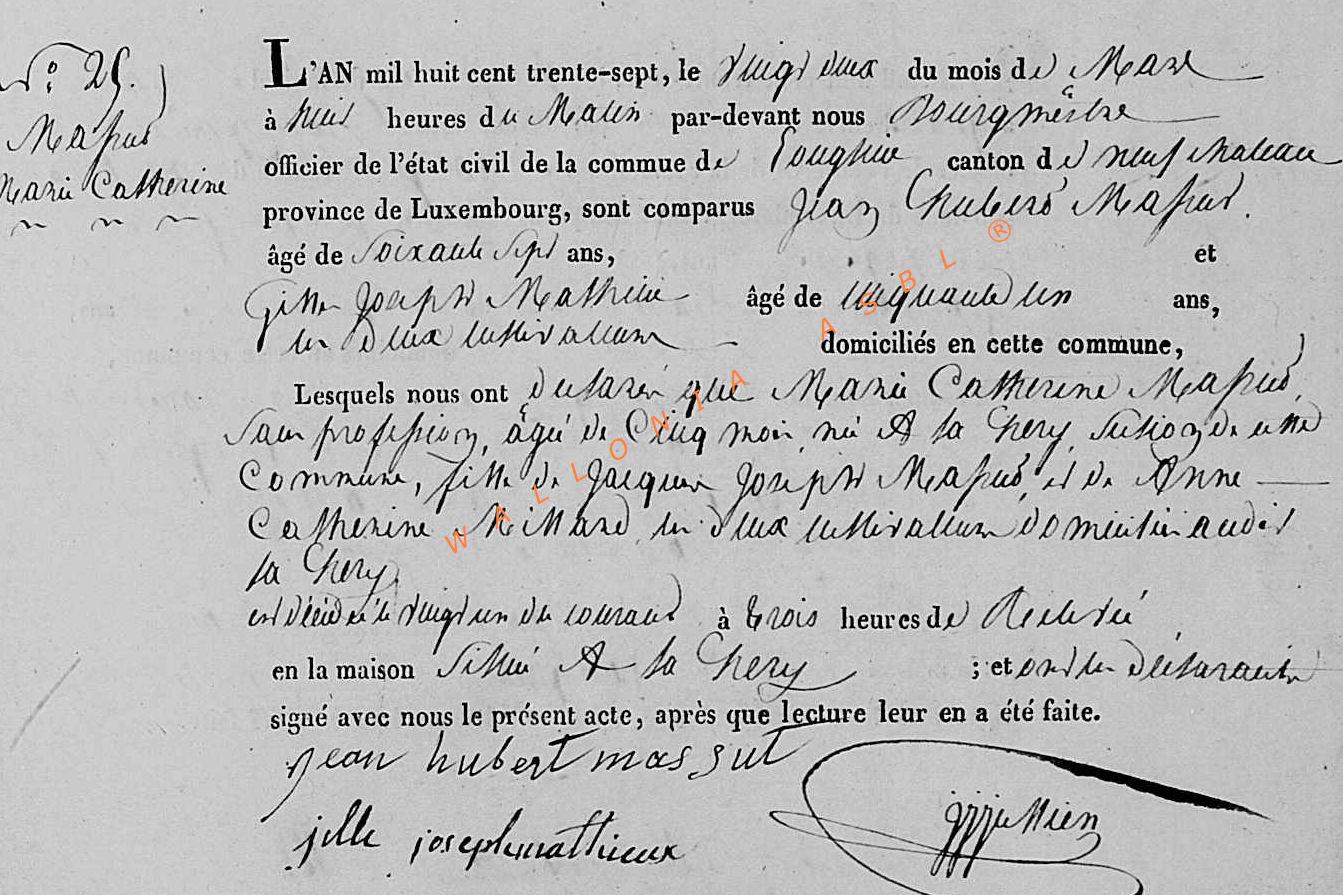 N.º 25.
Massut
Marie Catherine
L'AN mil huit cent trente-sept, le vingt deux du mois de Mars
à huit heures du Matin par-devant nous Bourgmestre
officier de l'état civil de la commue de canton de neufchateau
province de Luxembourg, sont comparus Jean Hubert Massut
âgé de soixante sept ans, et
Gille Joseph Mathieu âgé de cinquante un ans,
les deux cultivateurs domiciliés en cette commune,
Lesquels nous ont déclaré que Marie Catherine Massut,
sans profession, âgée de Cinq mois née A la Chery section de cette
Commune, fille de Jacques Joseph Massut, et de Anne
Catherine les deux cultivateurs domiciliés audit
la Chery
est décédée le vingt un du courant à trois heures de Relevée
en la maison sittuée A la Chery ; et ont les déclarants
signé avec nous le présent acte, après que lecture leur en a été faite.
jean hubert massut
jille joseph mathieux
WALLONIA ASBL ®